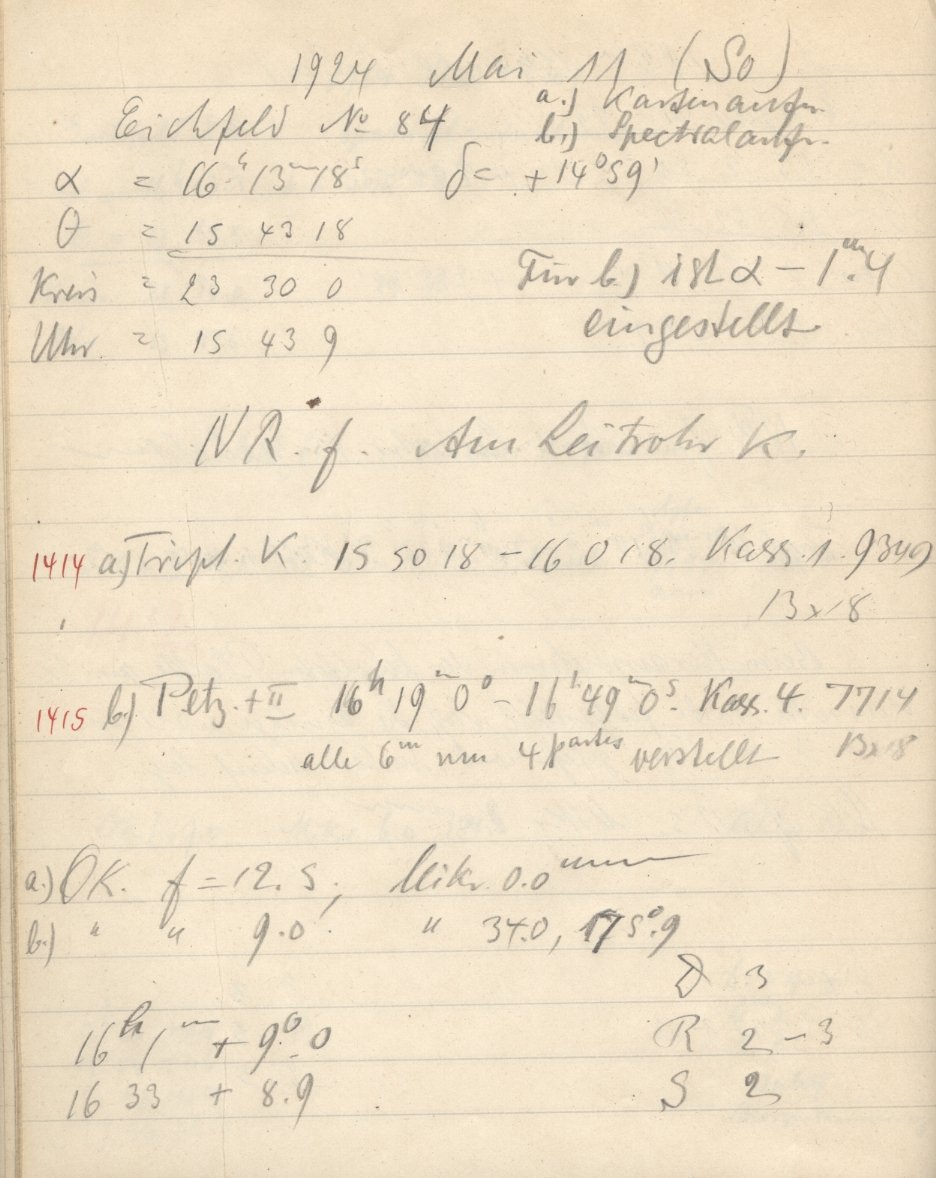 1924 Mai 11 (So)
a.) Kartenaufn.
Eichfeld № 84
b.) Spectralaufn.
α = 16ʰ 13ᵐ 18ˢ δ = +14°59'
θ = 15 43 18
Kreis = 23 30 0
Für b.) ist α – 1ᵐ.4
Uhr = 15 43 9
eingestellt
NR. f. Am Leitrohr K.
1414 a.) Tripl. K. 15 50 18 – 16 0 18. Kass. 1. 9349
13x18
1415 b.) Petz. + II 16ʰ 19ᵐ 0ˢ – 16ʰ 49ᵐ 0ˢ. Kass. 4. 7714
alle 6ᵐ um 4 partes verstellt 13x18
a.) OK. f = 12.5, Mikr. 0.0ᵐᵐ
b.) " " 9.0 " 34.0, 175°.9
D 3
16ʰ 1ᵐ + 9°.0 R 2–3
16 33 + 8.9 S 2